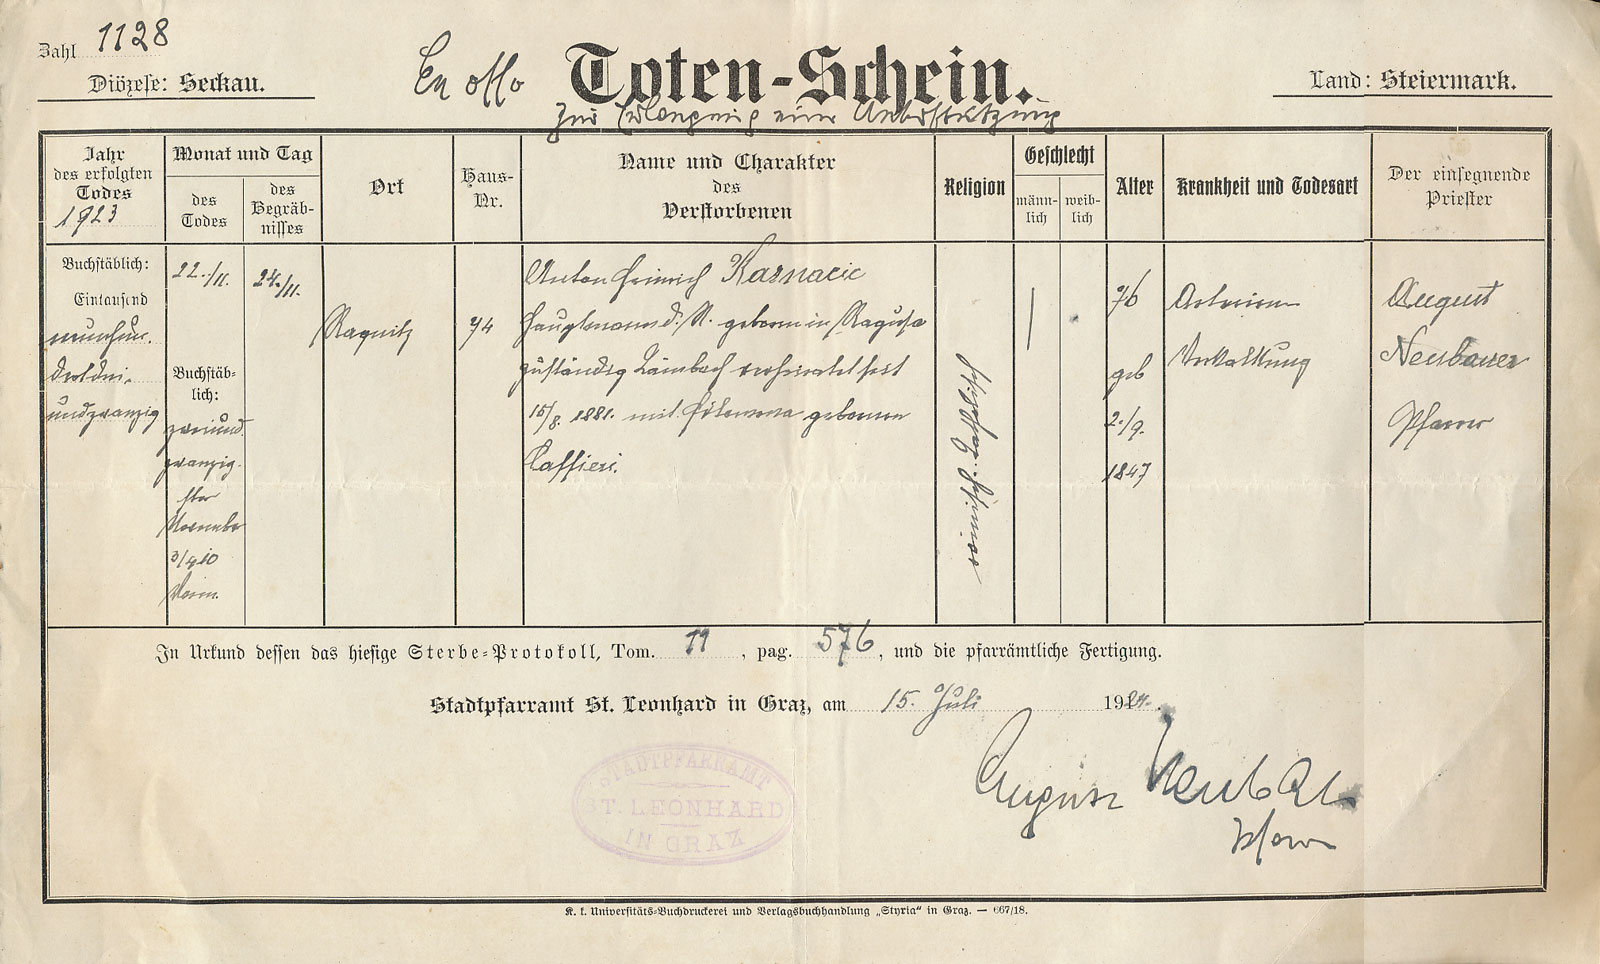 Zahl 1128
Diözese: Seckau.
Ex offo
Toten-Schein.
Land: Steiermark.
zur Erlangung einer Unterstützung
Jahr
des erfolgten
Todes
1923
Monat und Tag
des
Todes
des
Begräb-
nisses
Ort
Haus-
Nr.
Name und Charakter
des
Verstorbenen
Religion
Geschlecht
männ-
lich
weib-
lich
Alter
Krankheit und Todesart
Der einsegnende
Priester
Buchstäblich:
Eintausend
neunhun.
dertdrei.
undzwanzig
22./11.
Buchstäb-
lich:
zweiund
zwanzig.
ster
November
3/4 10
Vorm.
24./11.
Ragnitz
74
Anton Heinrich Kaznacic
Hauptmann d. R. geboren in Ragusa
zuständig Laimbach verheiratet seit
15/8. 1881. mit Filomena geborenen
Caffieri.
römisch-katholisch
76
geb
2./9.
1847
Arterien
Verkalkung
August
Neubauer
Pfarrer
In Urkund dessen das hiesige Sterbe-Protokoll, Tom. 11, pag. 576, und die pfarrämtliche Fertigung.
Stadtpfarramt St. Leonhard in Graz, am 15. Juli 1924.
August
Pfarrer
STADTPFARRAMT
ST. LEONHARD
IN GRAZ
K. k. Universitäts-Buchdruckerei und Verlagsbuchhandlung „Styria“ in Graz. — 667/18.